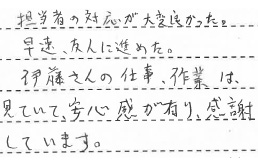 担当者の対応が大変良かった。
早速、友人に進めた。
伊藤さんの仕事、作業は、
見ていて、安心感が有り、感謝
しています。